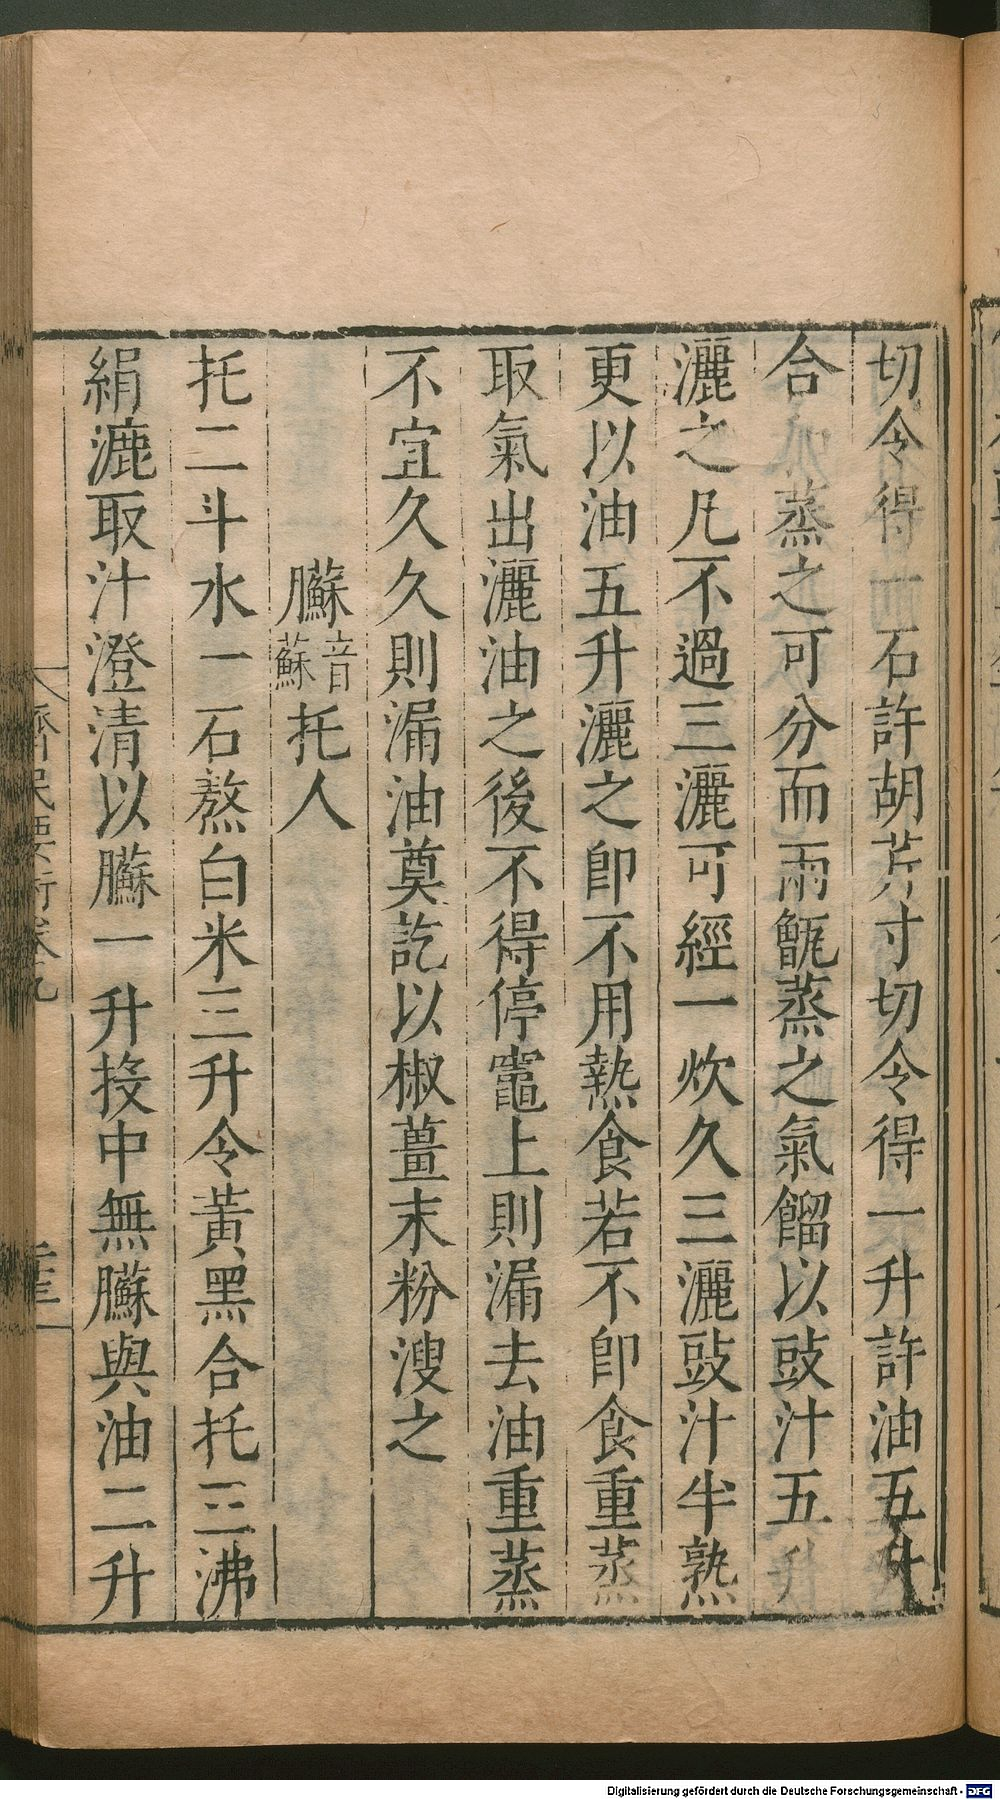 切令得一石許胡芹寸切令得一升許油五升
合派蒸之可分而兩甑蒸之氣餾以豉汁五升
灑之凡不過三灑可經一炊久三灑豉汁半熟
更以油五升灑之卽不用熱食若不卽食重蒸
取氣出灑油之後不得停竈上則漏去油重蒸
不宜久久則漏油奠訖以椒薑末粉溲之
𦢩音蘇托人
托二斗水一石熬白米三升令黃黑合托三沸
絹漉取汁澄清以𦢩一升投中無𦢩與油二升
齊民要術卷九
Digitalisierung gefördert durch die Deutsche Forschungsgemeinschaft - DFG